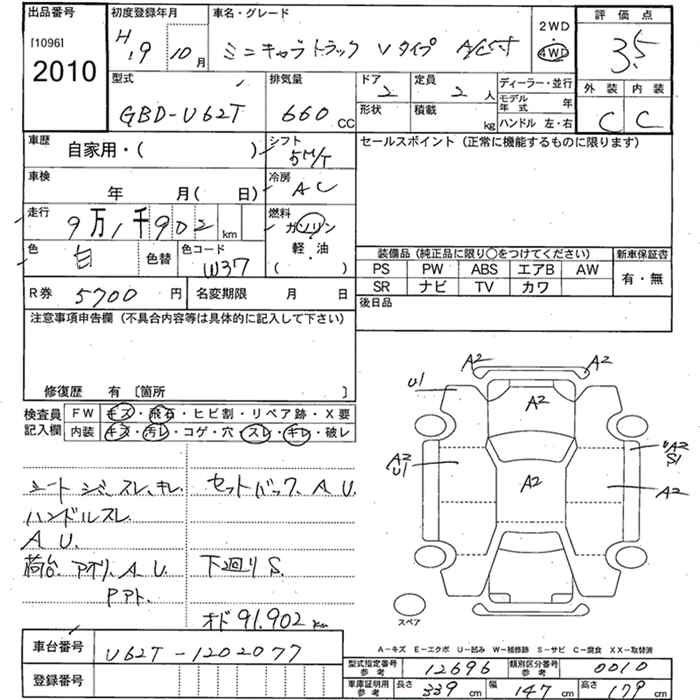 出品番号
[1096]
2010
初度登録年月
H.9 10月
車名・グレード
ミニキャブトラック Vタイプ A/Cｽｽ
2WD
4WD
評価点
3.5
外装 内装
C C
型式
GBD-U62T
排気量
660 CC
ドア
2
定員
2人
形状
積載
kg
ディーラー・並行
モデル年式 年
ハンドル 左・右
車歴
自家用・( )
シフト
5M/T
車検
年 月( 日)
冷房
AC
走行
9万1千902 km
燃料
ガソリン
軽・油
( )
色
白
色替
色コード
W37
R券 5700 円
名変期限 月 日
セールスポイント (正常に機能するものに限ります)
装備品 (純正品に限り○をつけてください)
PS PW ABS エアB AW
SR ナビ TV カワ
新車保証書
有・無
後日品
注意事項申告欄 (不具合内容等は具体的に記入して下さい)
修復歴 有 〔箇所 〕
検査員記入欄
FW キズ・飛石・ヒビ割・リペア跡・X要
内装 キズ・汚レ・コゲ・穴・スレ・キレ・破レ
シート シミ、スレ、キレ
ハンドルスレ
A U.
荷台、アオリ、A U
P P
セットバック、A U.
下廻り S.
オド 91.902 km
A2 A2
U1 A2
A2 U1
A2
A2 S1
A2
スペア
A-キズ E-エクボ U-凹み W-補修跡 S-サビ C-腐食 XX-取替済
車台番号
U62T-1202077
登録番号
型式指定番号 参考
12696
類別区分番号 参考
0010
車庫証明用 参考
長さ 339 cm 幅 147 cm 高さ 179 cm